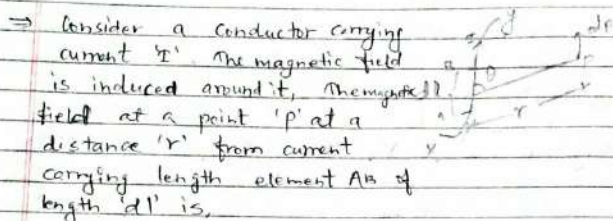 ⇒ Consider a conductor carrying
current 'I' The magnetic field
is induced around it, The magnetic
field at a point 'p' at a
distance 'r' from current
carrying length element AB of
length 'dl' is,
θ
r